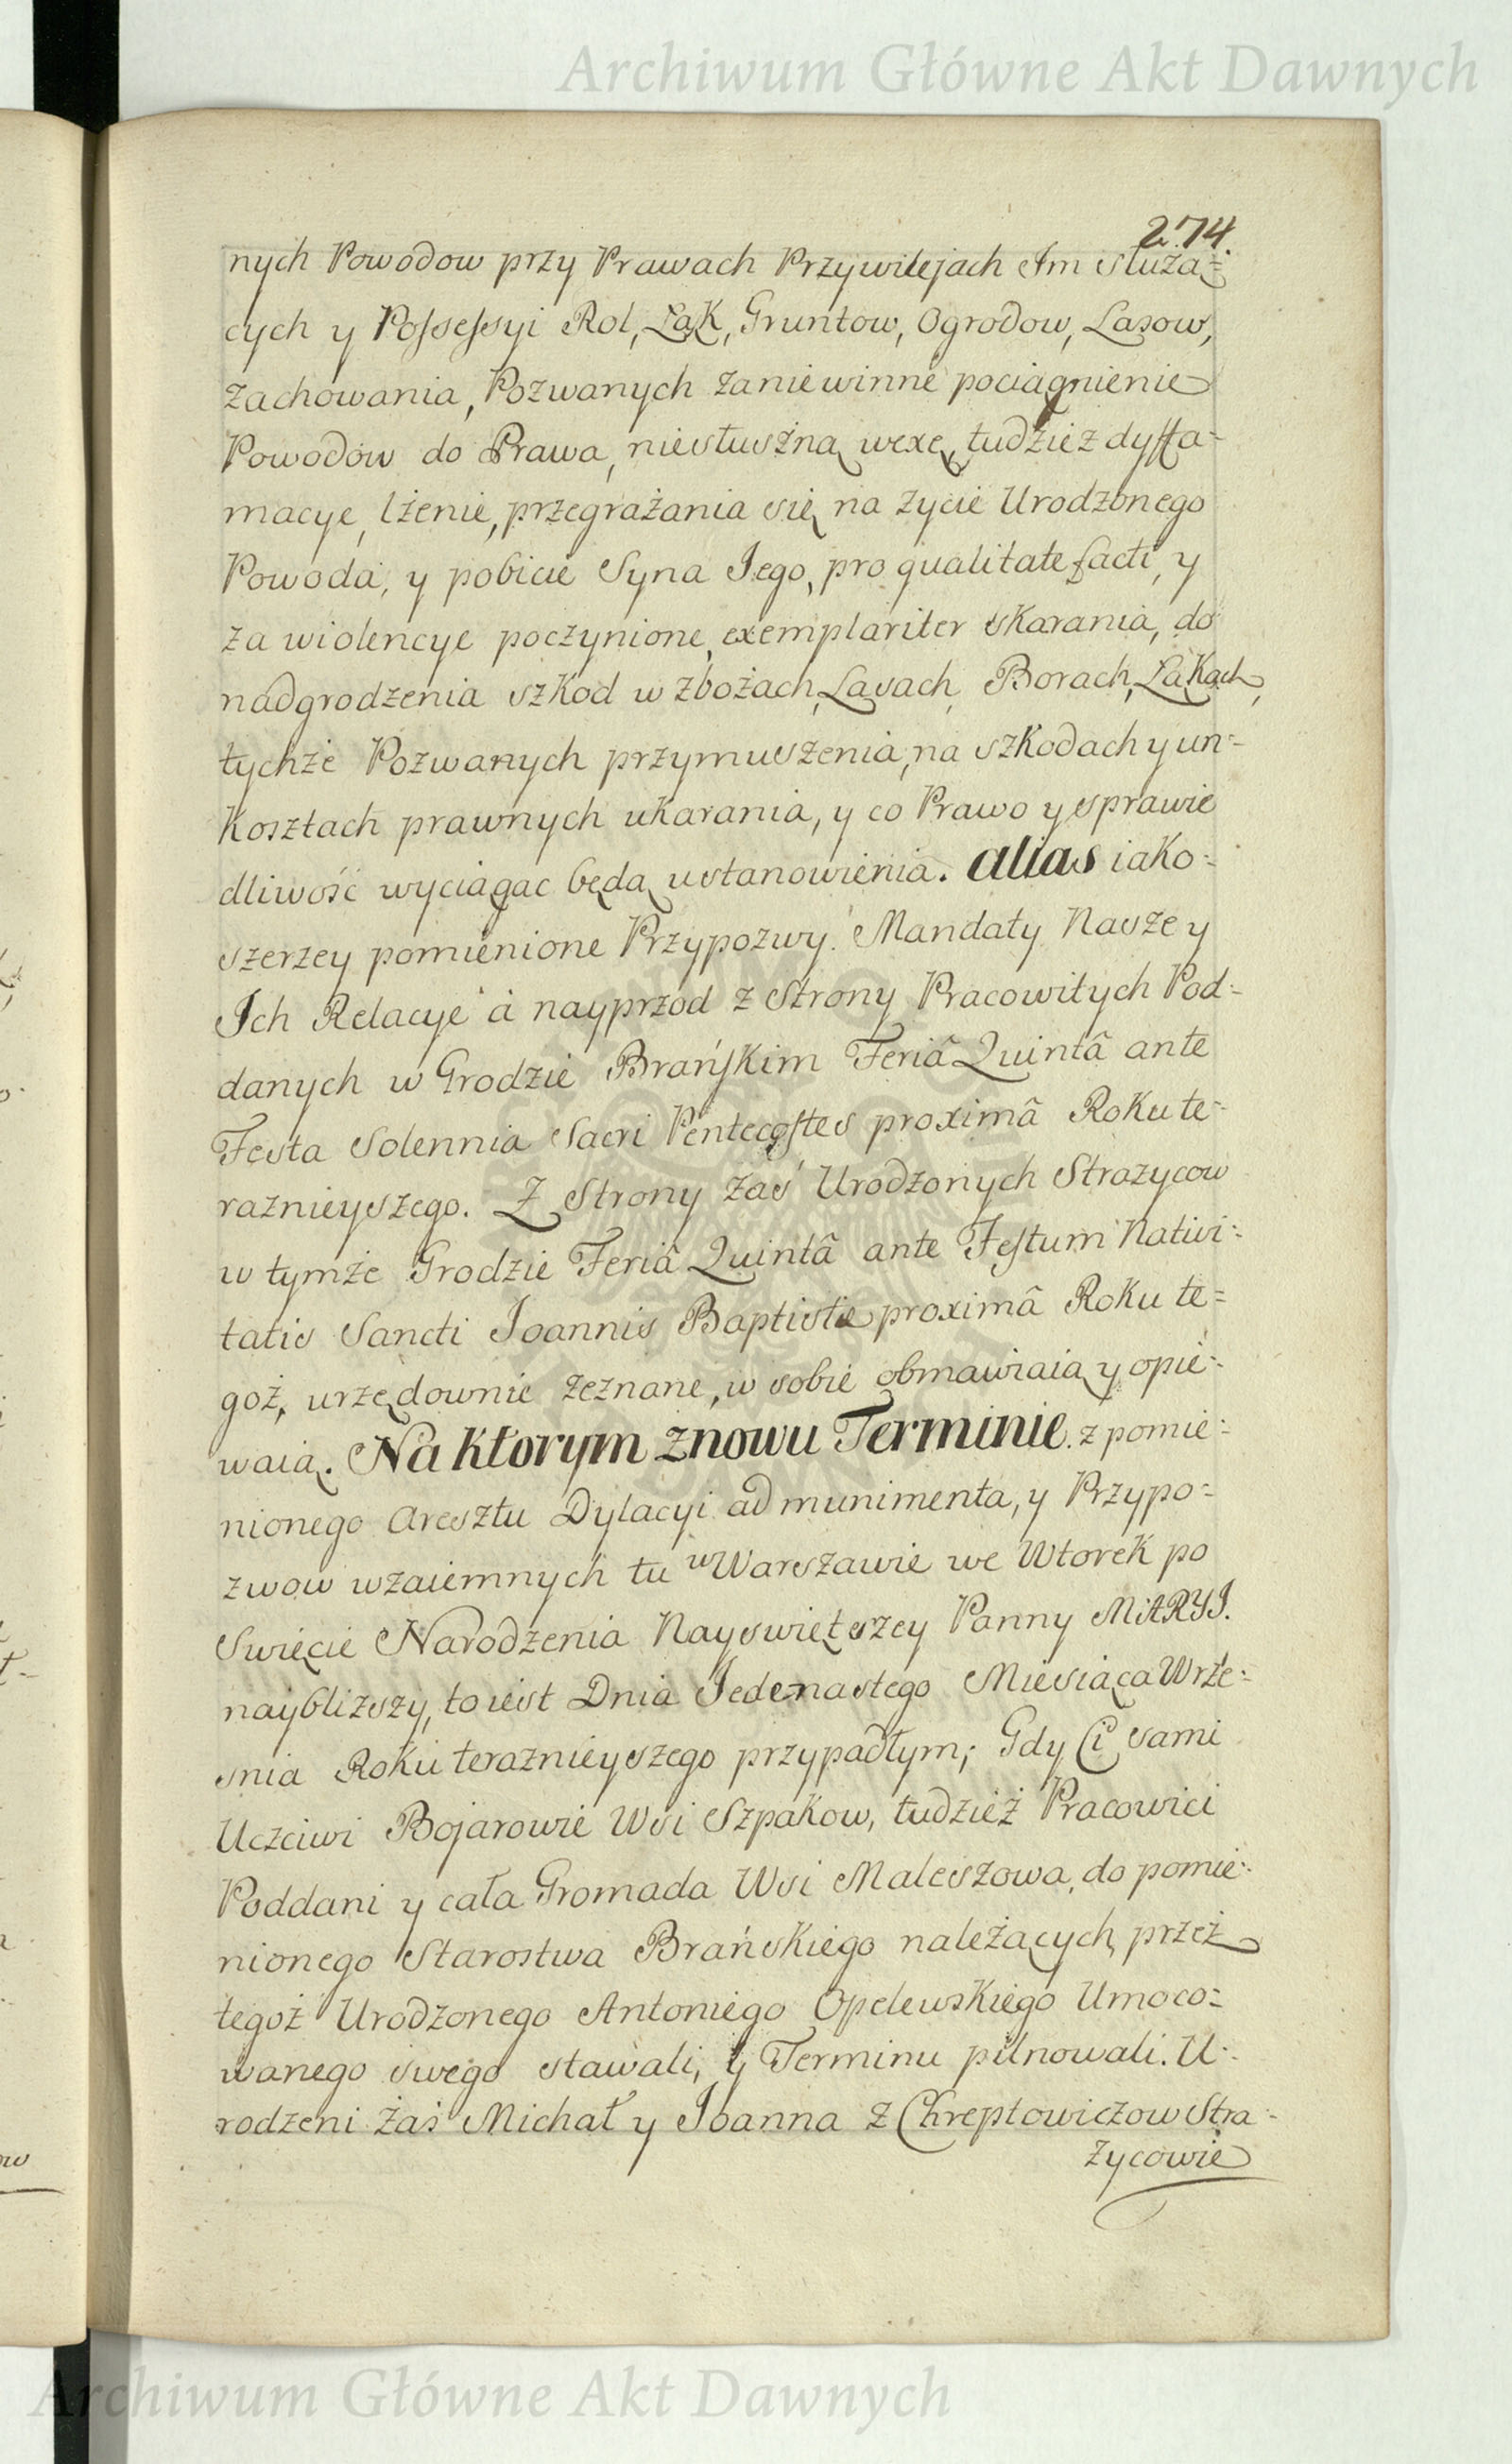 Archiwum Główne Akt Dawnych
274.
nych Powodow przy Prawach Przywilejach Im służą=
cych y Possessyi Rol, Łąk, Gruntow, Ogrodow, Lasow,
zachowania, Pozwanych za niewinne pociągnienie
Powodow do Prawa, niesłuszną wexę, tudziez dyffa=
macye, lżenie, przegrażania się na życie Urodzonego
Powoda, y pobicie Syna Jego, pro qualitate facti, y
za wiolencye poczynione, exemplariter skarania, do
nadgrodzenia szkod w zbożach, Lasach, Borach, Łąkach,
tychże Pozwanych przymuszenia, na szkodach y un=
kosztach prawnych ukarania, y co Prawo y sprawie
dliwość wyciągac będą ustanowienia. alias iako=
szerzey pomienione Przypozwy. Mandaty Nasze y
Ich Relacye à nayprzod z Strony Pracowitych Pod=
danych w Grodzie Brańskim Feriâ Quintâ ante
Festa Solennia Sacri Pentecostes proximâ Roku te=
raznieyszego. Z Strony zaś Urodzonych Strażycow
w tymże Grodzie Feriâ Quintâ ante Festum Nativi=
tatis Sancti Joannis Baptistæ proximâ Roku te=
goż, urzędownie zeznane, w sobie obmawiaią y opie=
waią. Na ktorym znowu Terminie z pomie=
nionego Aresztu Dylacyi ad munimenta, y Przypo=
zwow wzaiemnych tu w Warszawie we Wtorek po
Swięcie Narodzenia Nayswiętszey Panny MARYI.
naybliższy, to iest Dnia Jedenastego Miesiąca Wrze=
snia Roku teraznieyszego przypadłym; Gdy Ci sami
Uczciwi Bojarowie Wsi Szpakow, tudzież Pracowici
Poddani y cała Gromada Wsi Maleszowa, do pomie=
nionego Starostwa Brańskiego należących, przez
tegoż Urodzonego Antoniego Opelewskiego Umoco=
wanego swego stawali, y Terminu pilnowali. U=
rodzeni zaś Michał y Joanna z Chreptowiczow Stra=
życowie
Archiwum Główne Akt Dawnych